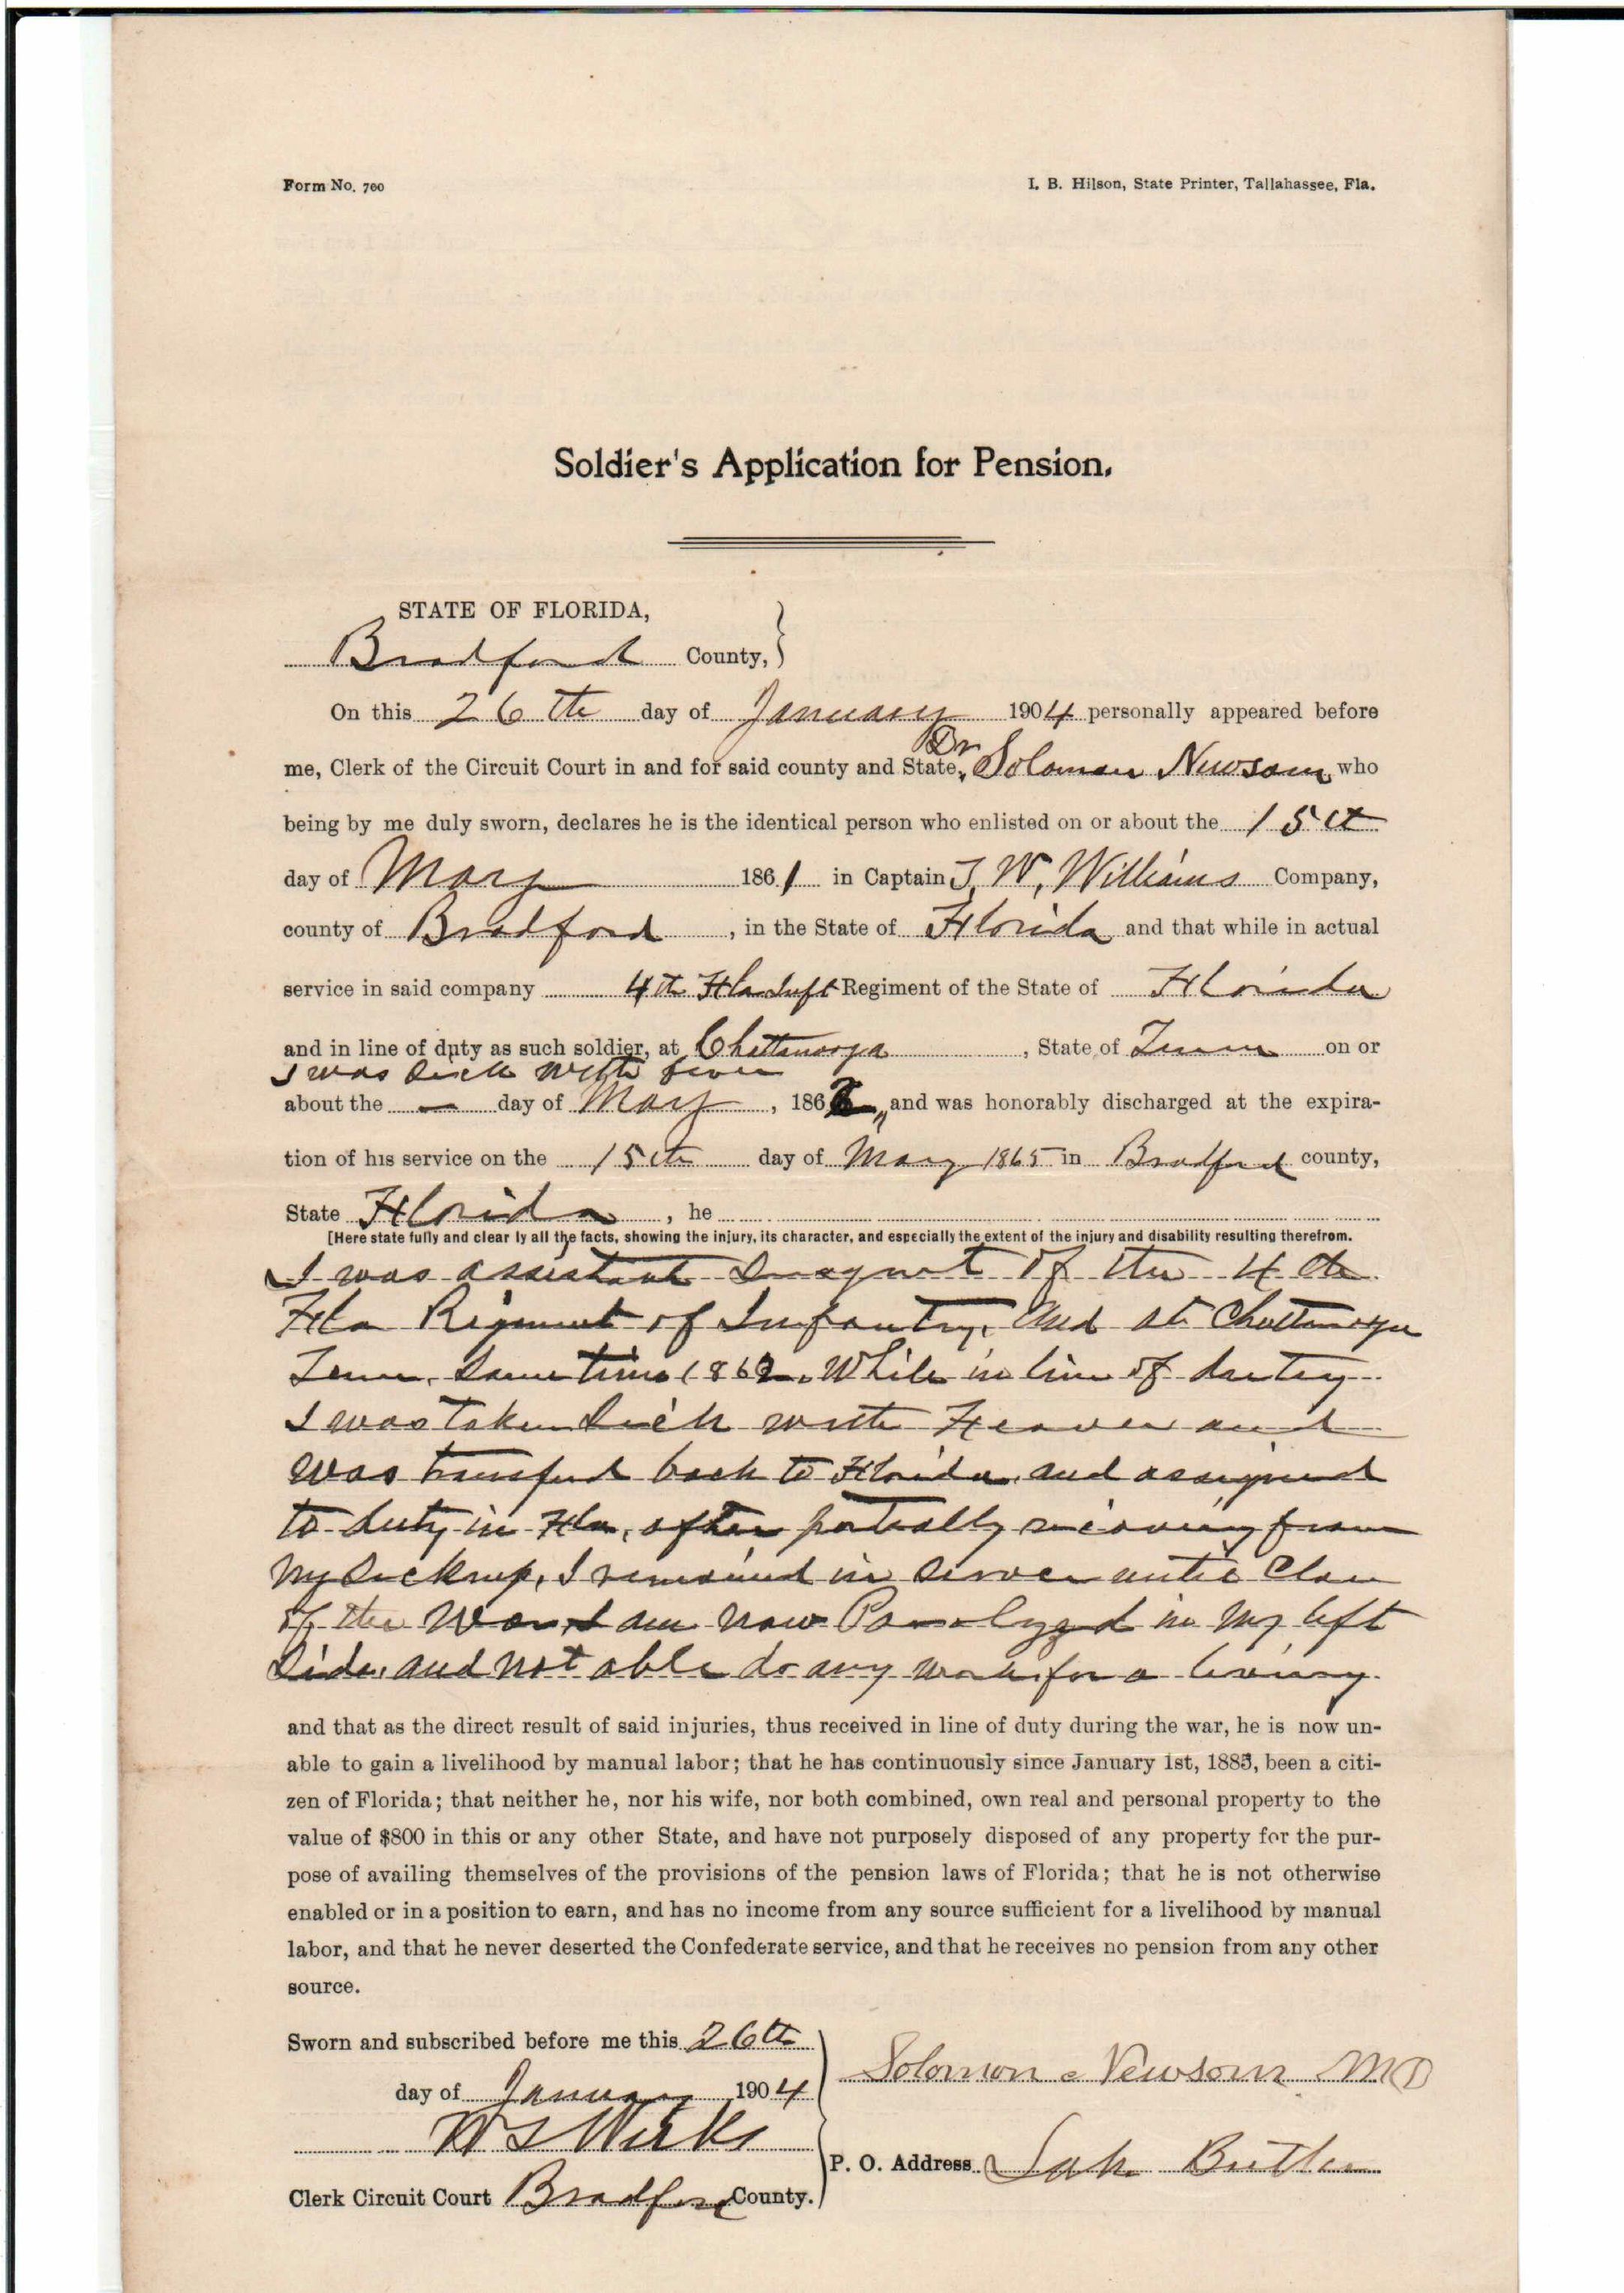 Form No. 700
I. B. Hilson, State Printer, Tallahassee, Fla.
Soldier's Application for Pension.
STATE OF FLORIDA,
Bradford County,
On this 26th day of January 1904 personally appeared before
Dr
me, Clerk of the Circuit Court in and for said county and State, Soloman Newsom, who
being by me duly sworn, declares he is the identical person who enlisted on or about the 15th
day of May 1861 in Captain T. W. Williams Company,
county of Bradford, in the State of Florida and that while in actual
service in said company 4th Fla Inft Regiment of the State of Florida
and in line of duty as such soldier, at Chattanooga, State of Tenn on or
I was Sick with fever
about the — day of May, 1862, and was honorably discharged at the expira-
tion of his service on the 15th day of May 1865 in Bradford county,
State Florida, he
[Here state fully and clearly all the facts, showing the injury, its character, and especially the extent of the injury and disability resulting therefrom.
I was assistant of the 4th
Fla Regiment of Infantry, and at Chattanooga
Tenn, Some time 1862. While in line of duty
I was taken Sick with Feaver and
was transferd back to Florida and assigned
to duty in Fla, after partially recovering from
My Sickness, I remained in Service until Close
of the War, I am now Paralyzed in My left
Side, and not able do any work for a living.
and that as the direct result of said injuries, thus received in line of duty during the war, he is now un-
able to gain a livelihood by manual labor; that he has continuously since January 1st, 1885, been a citi-
zen of Florida; that neither he, nor his wife, nor both combined, own real and personal property to the
value of $800 in this or any other State, and have not purposely disposed of any property for the pur-
pose of availing themselves of the provisions of the pension laws of Florida; that he is not otherwise
enabled or in a position to earn, and has no income from any source sufficient for a livelihood by manual
labor, and that he never deserted the Confederate service, and that he receives no pension from any other
source.
Sworn and subscribed before me this 26th
day of January 1904
Solomon Newsom MD
P. O. Address Lake Butler
Clerk Circuit Court Bradford County.